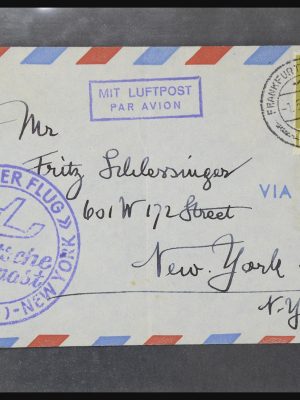 MIT LUFTPOST
PAR AVION
FRANKFURT
Mr
Fritz Schlessinger
601 W 172 Street
VIA
New. York
N.Y
ER FLUG »
tsche
post
) - NEW YORK